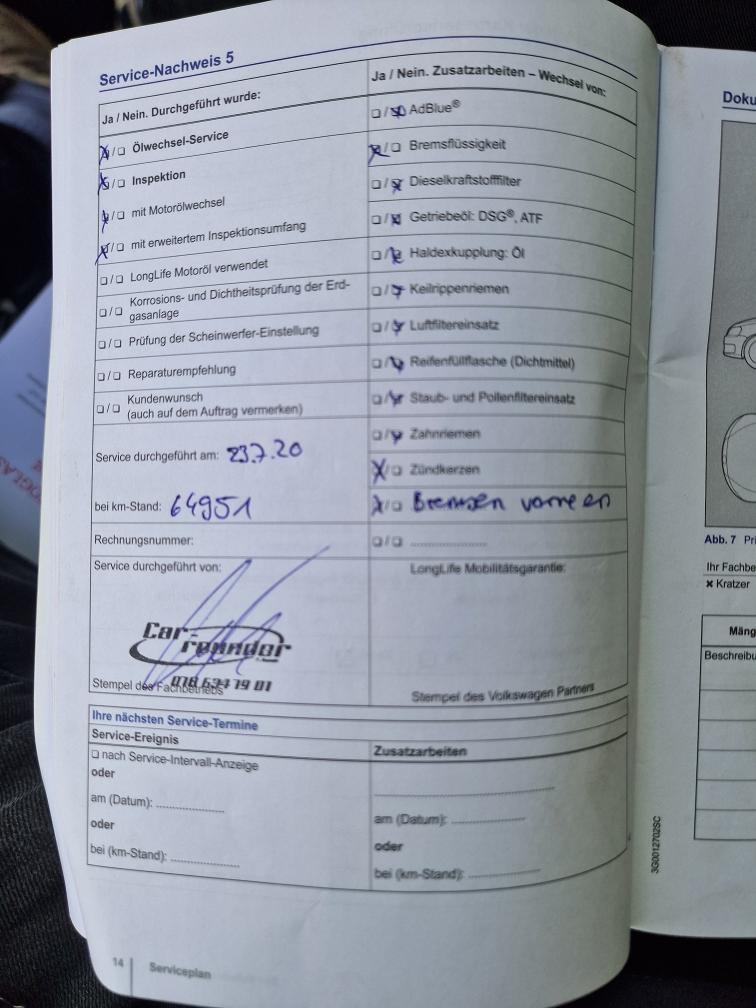 Service-Nachweis 5
Ja / Nein. Durchgeführt wurde:
☒/☐ Ölwechsel-Service
☒/☐ Inspektion
☒/☐ mit Motorölwechsel
☒/☐ mit erweitertem Inspektionsumfang
☐/☐ LongLife Motoröl verwendet
☐/☐ Korrosions- und Dichtheitsprüfung der Erd-
gasanlage
☐/☐ Prüfung der Scheinwerfer-Einstellung
☐/☐ Reparaturempfehlung
☐/☐ Kundenwunsch
(auch auf dem Auftrag vermerken)
Service durchgeführt am: 23.7.20
bei km-Stand: 64951
Rechnungsnummer:
Service durchgeführt von:
Car-
Stempel des Fachbetriebs
Ja / Nein. Zusatzarbeiten – Wechsel von:
☐/☒ AdBlue®
☒/☐ Bremsflüssigkeit
☐/☒ Dieselkraftstofffilter
☐/☒ Getriebeöl: DSG®, ATF
☐/☒ Haldexkupplung: Öl
☐/☒ Keilrippenriemen
☐/☒ Luftfiltereinsatz
☐/☒ Reifenfüllflasche (Dichtmittel)
☐/☒ Staub- und Pollenfiltereinsatz
☐/☒ Zahnriemen
☒/☐ Zündkerzen
☒/☐ Bremsen vorne en
☐/☐ ....................
LongLife Mobilitätsgarantie:
Stempel des Volkswagen Partners
Ihre nächsten Service-Termine
Service-Ereignis
☐ nach Service-Intervall-Anzeige
oder
am (Datum): ..................
oder
bei (km-Stand): ..................
Zusatzarbeiten
..................
am (Datum): ..................
oder
bei (km-Stand): ..................
14 Serviceplan
3G0012702SC
Doku
Abb. 7 Pri
Ihr Fachbe
× Kratzer
Mäng
Beschreibu